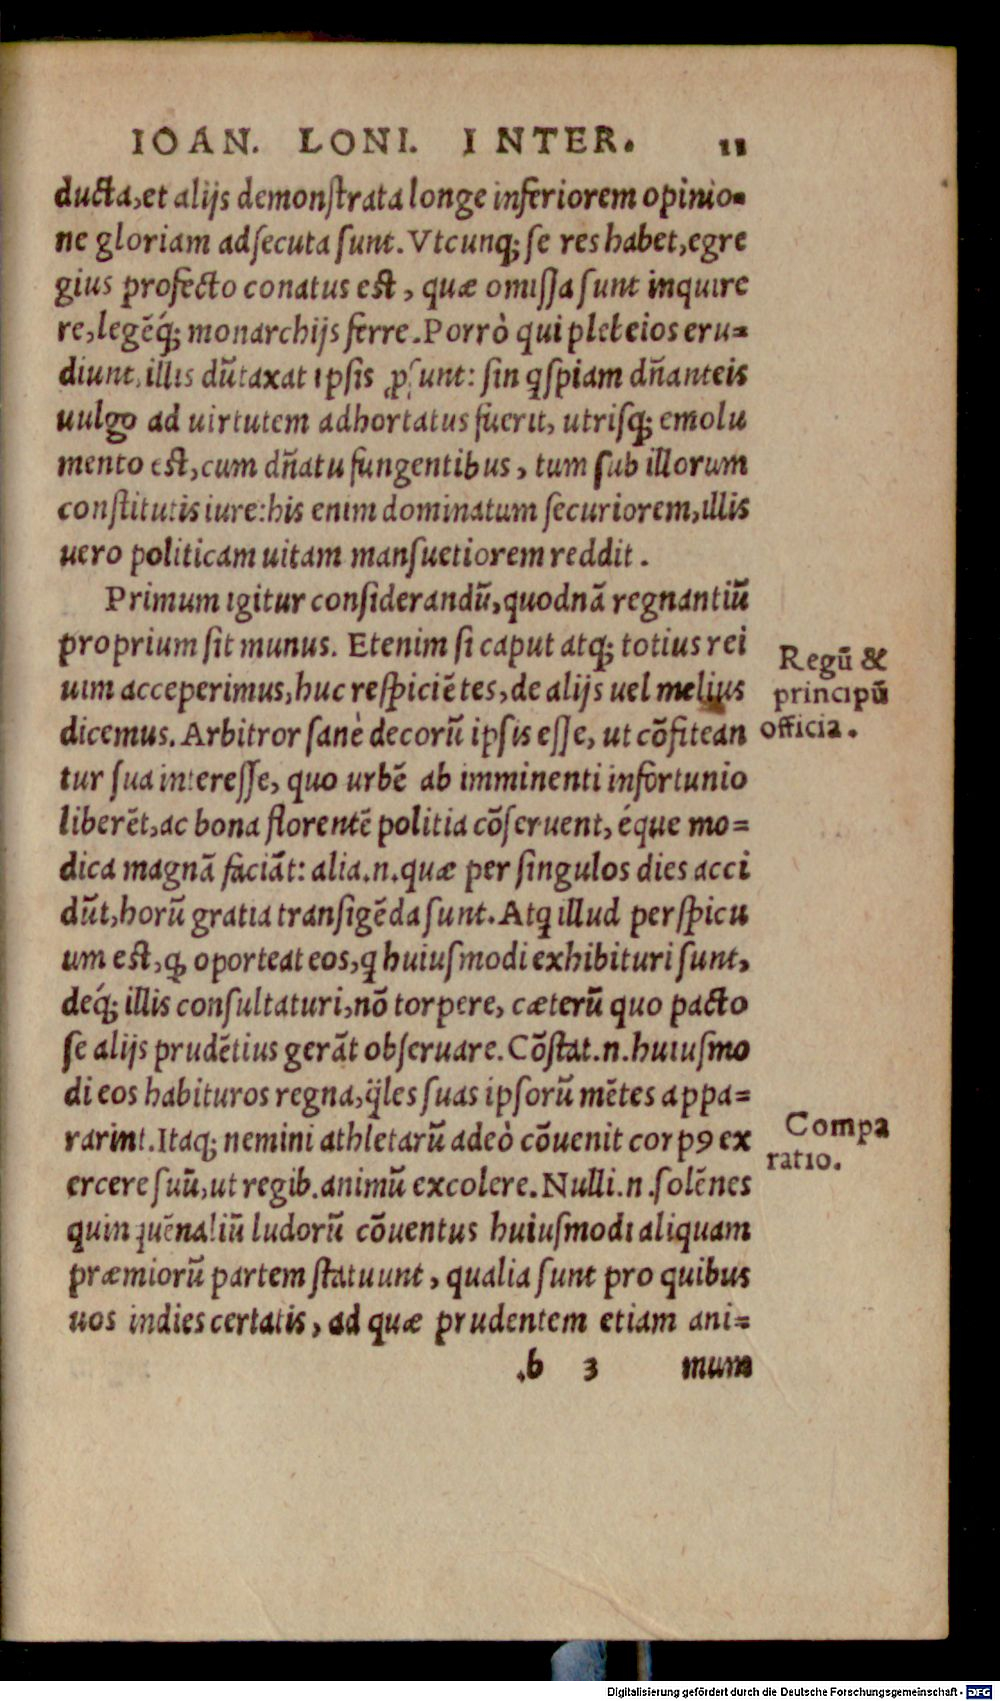 IOAN. LONI. INTER. 11
ducta, et alijs demonſtrata longe inferiorem opinio-
ne gloriam adſecuta ſunt. Vtcunq; ſe res habet, egre
gius profecto conatus eſt, quæ omiſſa ſunt inquire
re, legẽq́; monarchijs ferre. Porrò qui plebeios eru-
diunt, illis dũtaxat ipsis ꝓſunt: ſin qſpiam dñanteis
uulgo ad uirtutem adhortatus fuerit, utriſq; emolu
mento eſt, cum dñatu fungentibus, tum ſub illorum
conſtitutis iure: his enim dominatum ſecuriorem, illis
uero politicam uitam manſuetiorem reddit.
Primum igitur conſiderandũ, quodnã regnantiũ
proprium ſit munus. Etenim ſi caput atq; totius rei
uim acceperimus, huc reſpiciẽtes, de alijs uel melius
dicemus. Arbitror ſanè decorũ ipſis eſſe, ut cõfitean
tur ſua intereſſe, quo urbẽ ab imminenti infortunio
liberẽt, ac bona florentẽ politia cõſeruent, éque mo=
dica magnã faciãt: alia.n.quæ per ſingulos dies acci
dũt, horũ gratia tranſigẽda ſunt. Atq illud perſpicu
um eſt, ꝙ oporteat eos, q huiuſmodi exhibituri ſunt,
deq́; illis conſultaturi, nõ torpere, cæterũ quo pacto
ſe alijs prudẽtius gerãt obſeruare. Cõſtat.n.huiuſmo
di eos habituros regna, q̈les ſuas ipſorũ mẽtes appa=
rarint. Itaq; nemini athletarũ adeò cõuenit corpꝰ ex
ercere ſuũ, ut regib. animũ excolere. Nulli.n.ſolẽnes
quinquẽnaliũ ludorũ cõuentus huiuſmodi aliquam
præmiorũ partem ſtatuunt, qualia ſunt pro quibus
uos indies certatis, ad quæ prudentem etiam ani=
.b 3 mum
Regũ &
principũ
officia.
Compa
ratio.
Digitalisierung gefördert durch die Deutsche Forschungsgemeinschaft - DFG